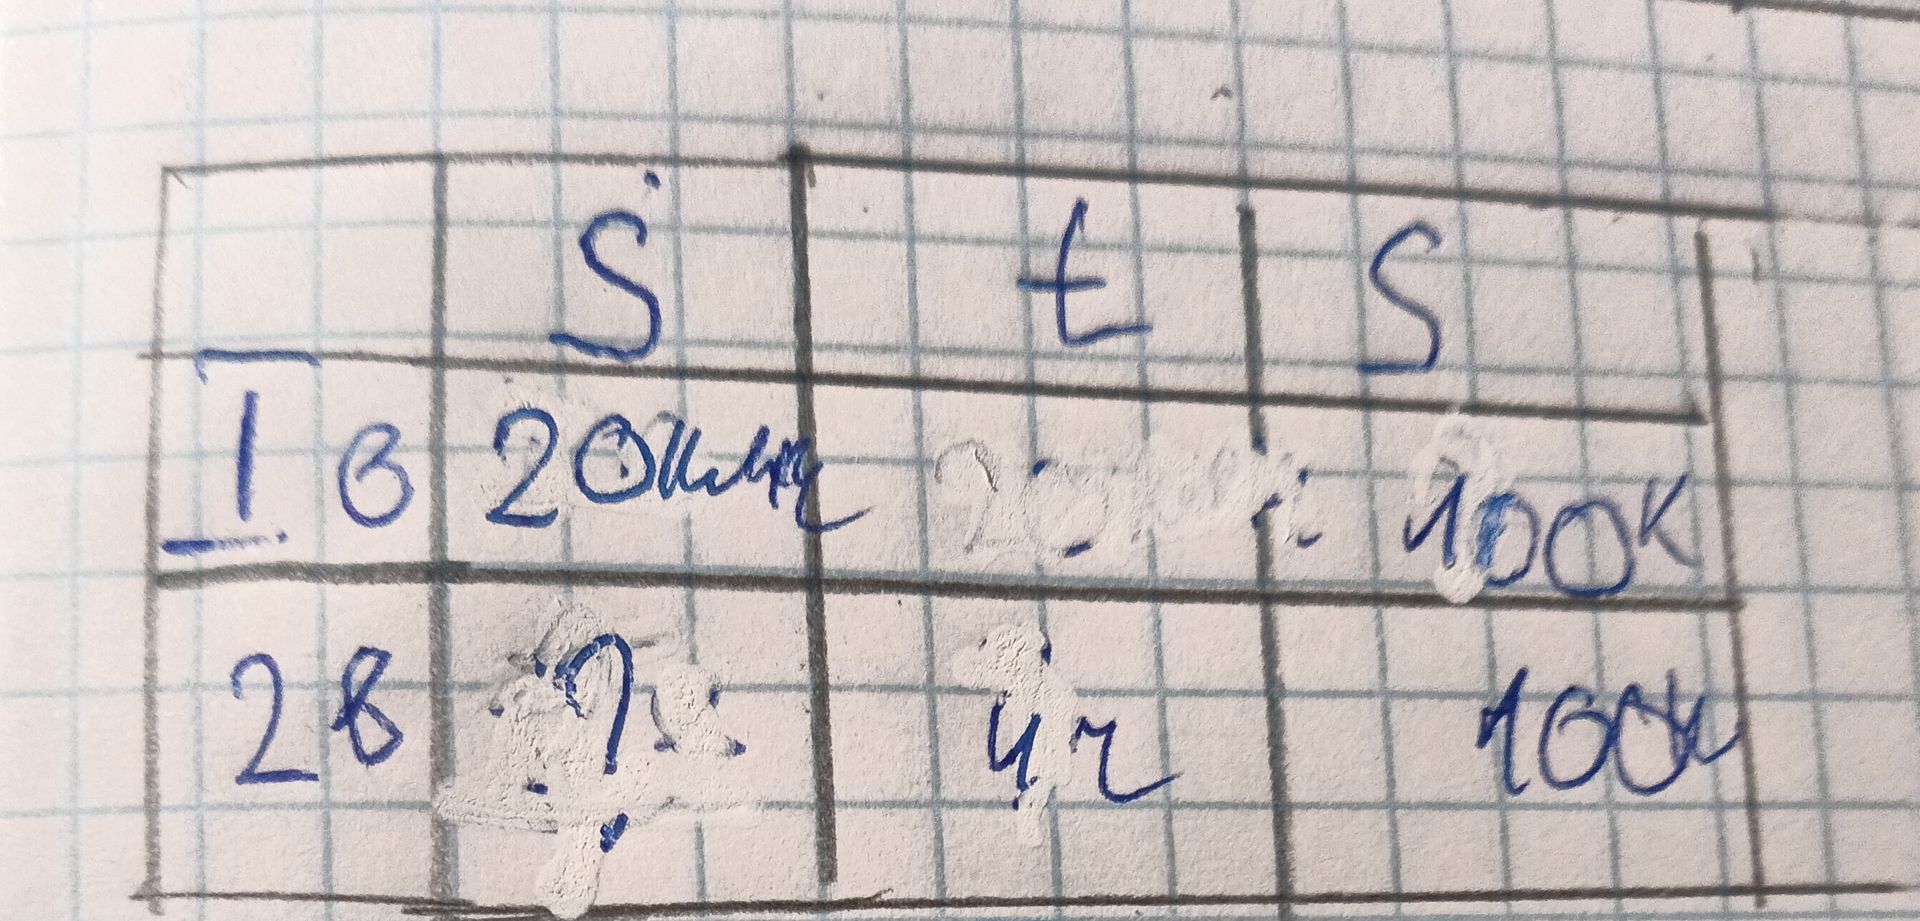 S t S
I в 20км/ч 100к
2 в ? 4ч 100к